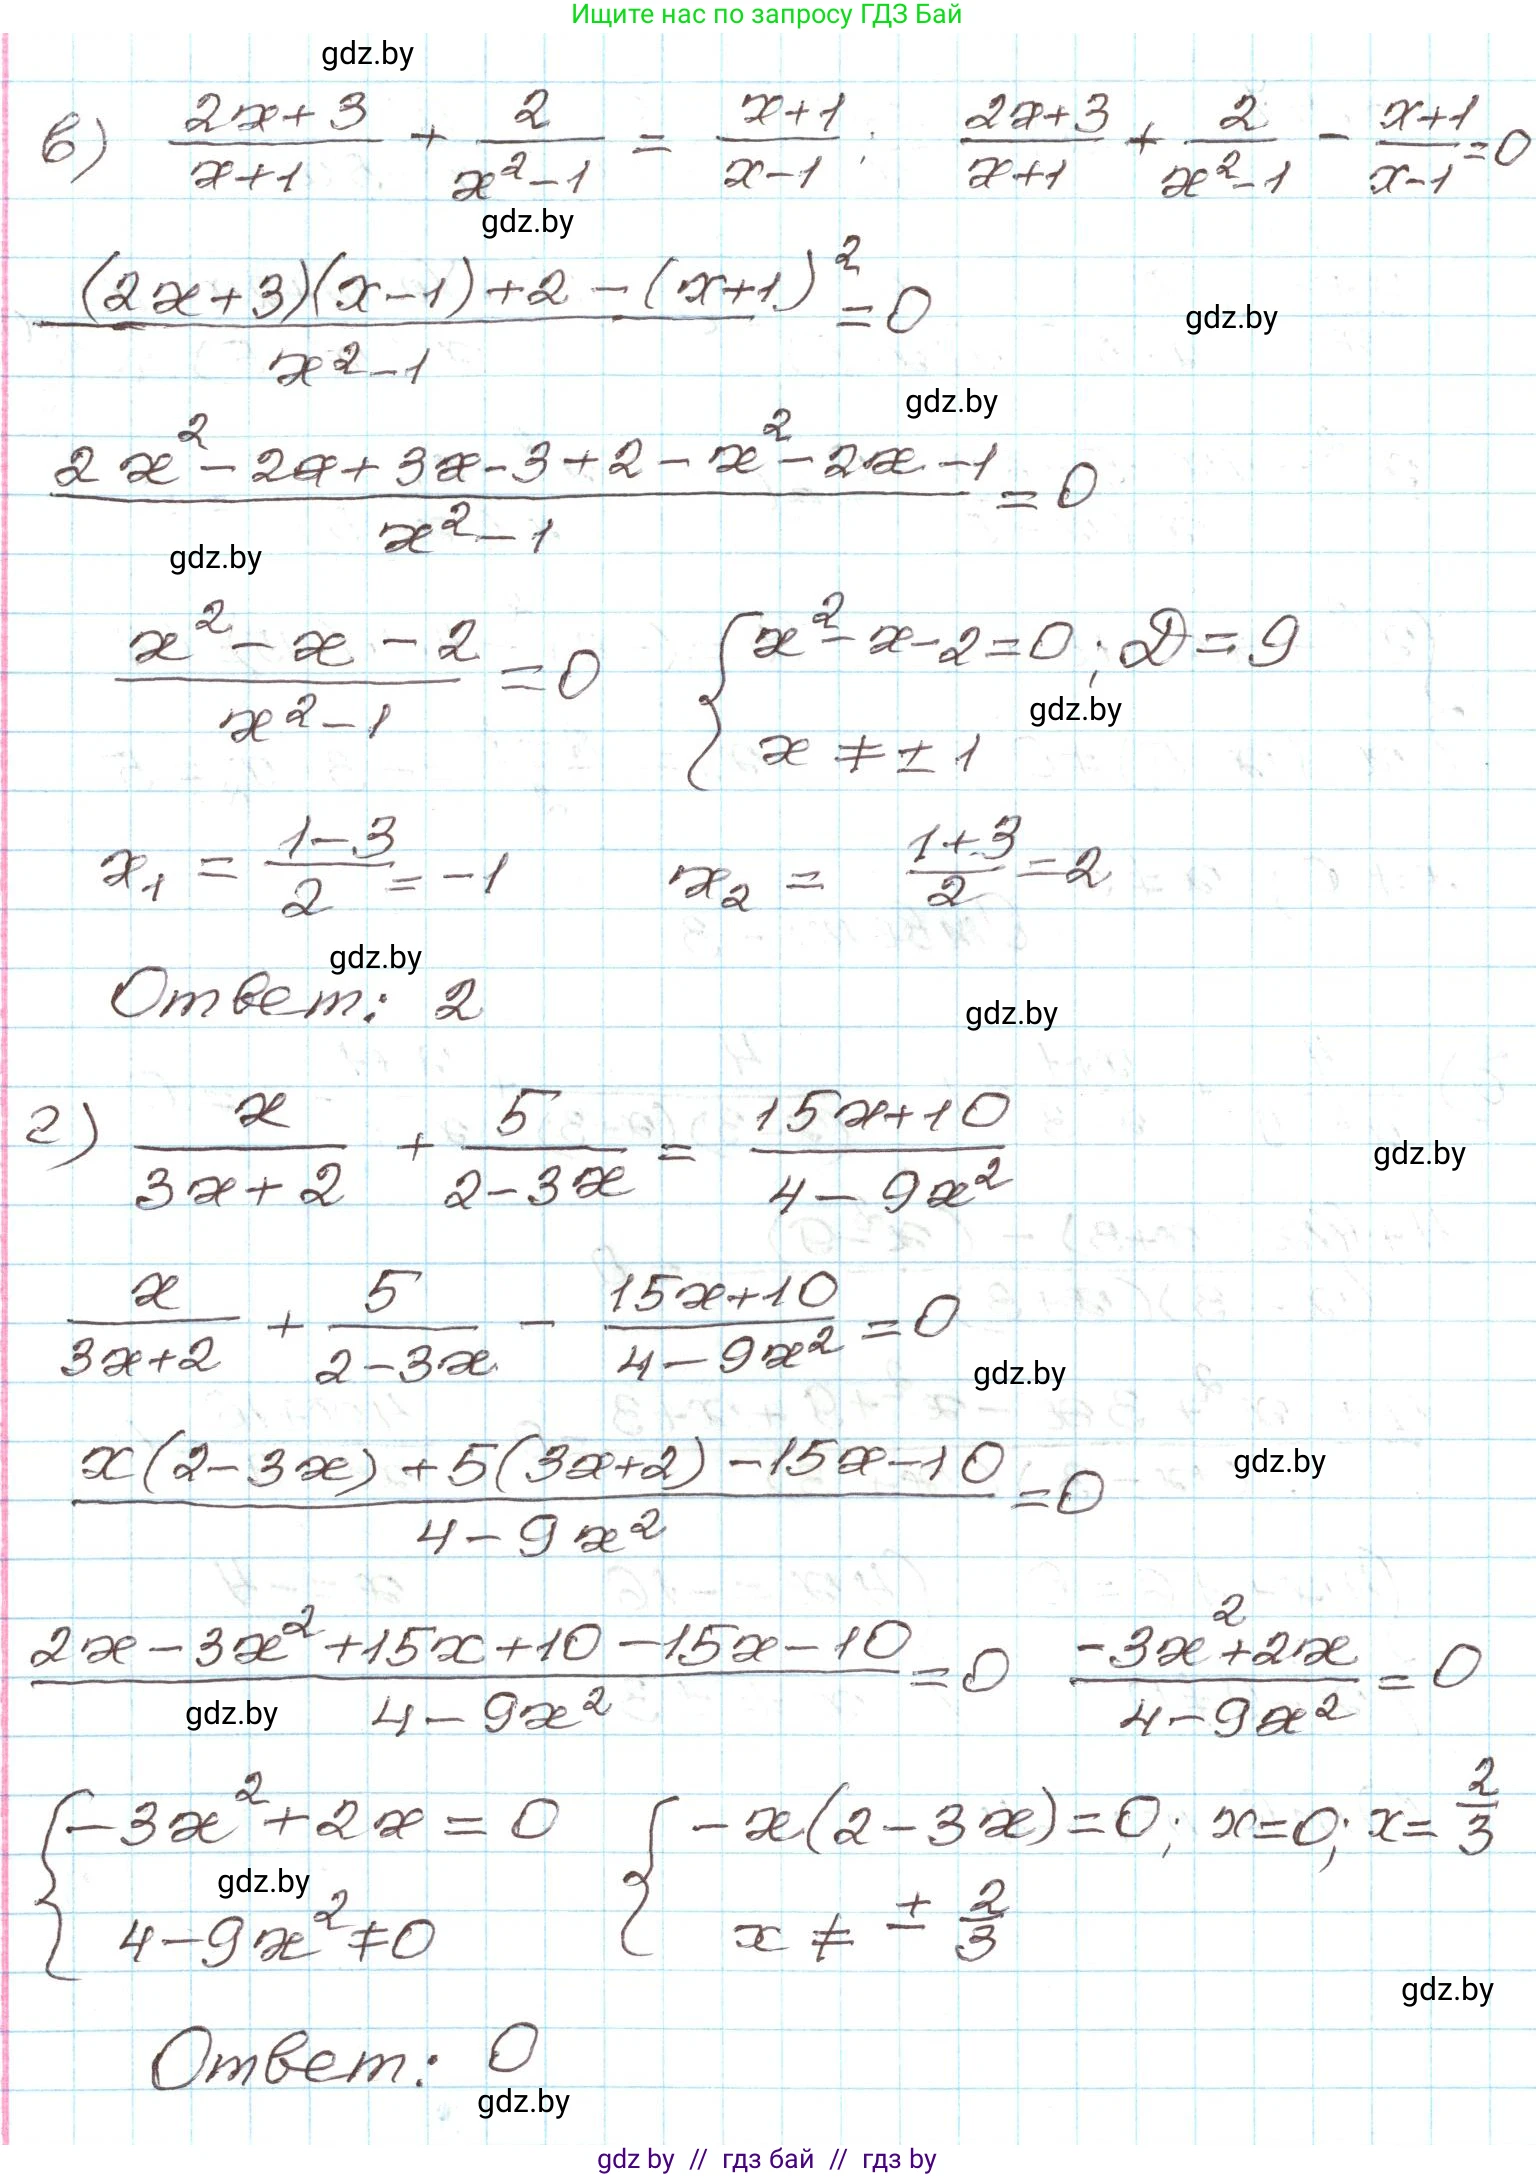 Ищите нас по запросу ГДЗ Бай
gdz.by
в) (2x+3)/(x+1) + 2/(x²-1) = (x+1)/(x-1); (2x+3)/(x+1) + 2/(x²-1) - (x+1)/(x-1) = 0
gdz.by
((2x+3)(x-1)+2-(x+1)²)/(x²-1) = 0
gdz.by
gdz.by
(2x²-2x+3x-3+2-x²-2x-1)/(x²-1) = 0
gdz.by
(x²-x-2)/(x²-1) = 0 { x²-x-2=0; D=9
gdz.by
x ≠ ±1
x₁ = (1-3)/2 = -1 x₂ = (1+3)/2 = 2
gdz.by
Ответ: 2
gdz.by
г) x/(3x+2) + 5/(2-3x) = (15x+10)/(4-9x²)
gdz.by
x/(3x+2) + 5/(2-3x) - (15x+10)/(4-9x²) = 0
gdz.by
(x(2-3x)+5(3x+2)-15x-10)/(4-9x²) = 0
gdz.by
(2x-3x²+15x+10-15x-10)/(4-9x²) = 0 (-3x²+2x)/(4-9x²) = 0
gdz.by
{ -3x²+2x=0 { -x(2-3x)=0; x=0; x=2/3
gdz.by
4-9x²≠0 x ≠ ± 2/3
gdz.by
Ответ: 0
gdz.by
gdz by // гдз бай // gdz by